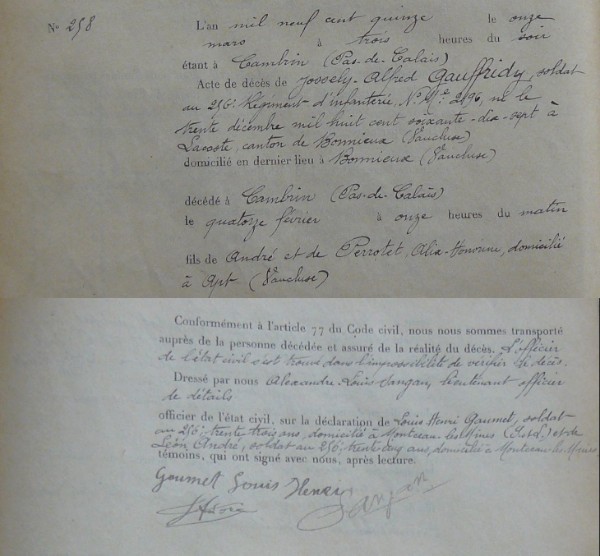 N° 258
L'an mil neuf cent quinze le onze
mars à trois heures du soir
étant à Cambrin (Pas-de-Calais)
Acte de décès de Joscely-Alfred Gauffridy, soldat
au 256e Régiment d'infanterie, N° Mle 2196, né le
trente décembre mil huit cent soixante-dix-sept à
Lacoste canton de Bonnieux (Vaucluse)
domicilié en dernier lieu à Bonnieux (Vaucluse)
décédé à Cambrin (Pas-de-Calais)
le quatorze février à onze heures du matin
fils de André et de Perrotet, domicilié
à Apt (Vaucluse)
Conformément à l'article 77 du Code civil, nous nous sommes transporté
auprès de la personne décédée et assuré de la réalité du décès. L'officier
de l'état civil s'est trouvé dans l'impossibilité de vérifier le décès.
Dressé par nous Alexandre Louis Sangan, lieutenant officier
de détails
officier de l'état civil, sur la déclaration de Louis Henri Gaumet, soldat
au 256e trente trois ans, domicilié à Montceau-les-Mines (S.et.L.) et de
Léon André, soldat au 256e trente cinq ans, domicilié à Montceau les Mines
témoins, qui ont signé avec nous, après lecture.
Goumet Louis Henri